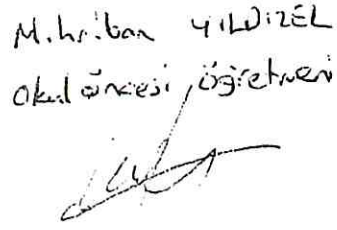 Mihriban YILDIZEL
Okul öncesi öğretmeni